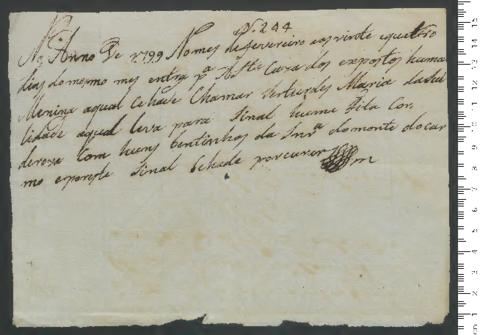 Nº 244
No Anno De 1799 No mes de fevereiro aos vinte e quatro
dias do mesmo mes entrou pª esta Caza dos expostos huma
Menina a qual se hade Chamar Gertrudes Maria da
lidade a qual leva para Sinal huma fita Cor
de roza Com huns bentinhos da Snrª do monte do Car
mo e por este Sinal se hade procurar